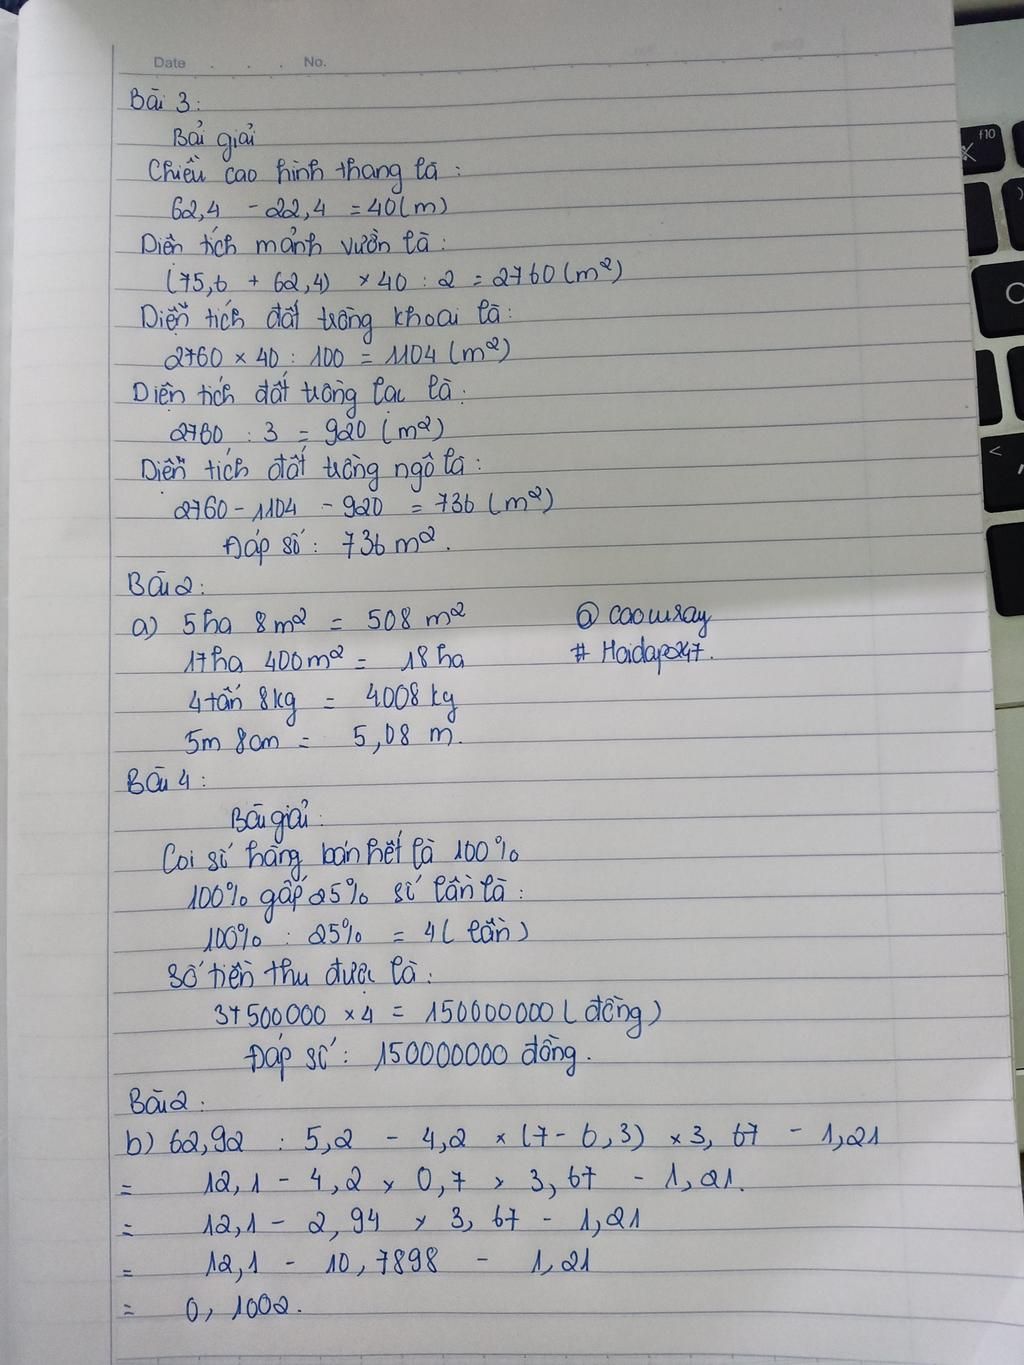 Date . . . No.
Bài 3:
Bài giải
Chiều cao hình thang là:
62,4 - 22,4 = 40(m)
Diện tích mảnh vườn là:
(75,6 + 62,4) × 40 : 2 = 2760 (m²)
Diện tích đất trồng khoai là:
2760 × 40 : 100 = 1104 (m²)
Diện tích đất trồng lạc là:
2760 : 3 = 920 (m²)
Diện tích đất trồng ngô là:
2760 - 1104 - 920 = 736 (m²)
Đáp số: 736 m².
Bài 2:
a) 5ha 8m² = 508 m² @ caowray
17ha 400m² = 18ha # Hoidap247.
4 tấn 8kg = 4008 kg
5m 8cm = 5,08 m.
Bài 4:
Bài giải:
Coi số hàng bán hết là 100%
100% gấp 25% số lần là:
100% : 25% = 4 (lần)
Số tiền thu được là:
37500000 × 4 = 150000000 (đồng)
Đáp số: 150000000 đồng.
Bài 2:
b) 62,92 : 5,2 - 4,2 × (7 - 6,3) × 3,67 - 1,21
= 12,1 - 4,2 × 0,7 × 3,67 - 1,21.
= 12,1 - 2,94 × 3,67 - 1,21
= 12,1 - 10,7898 - 1,21
= 0,1002.
f10